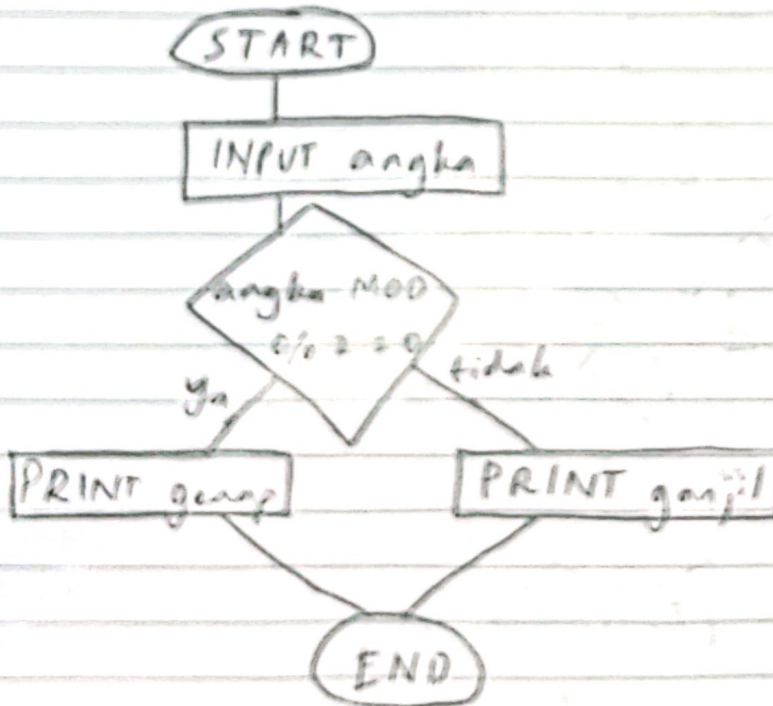 START
INPUT angka
angka MOD
% 2 = 0
ya
tidak
PRINT genap
PRINT ganjil
END